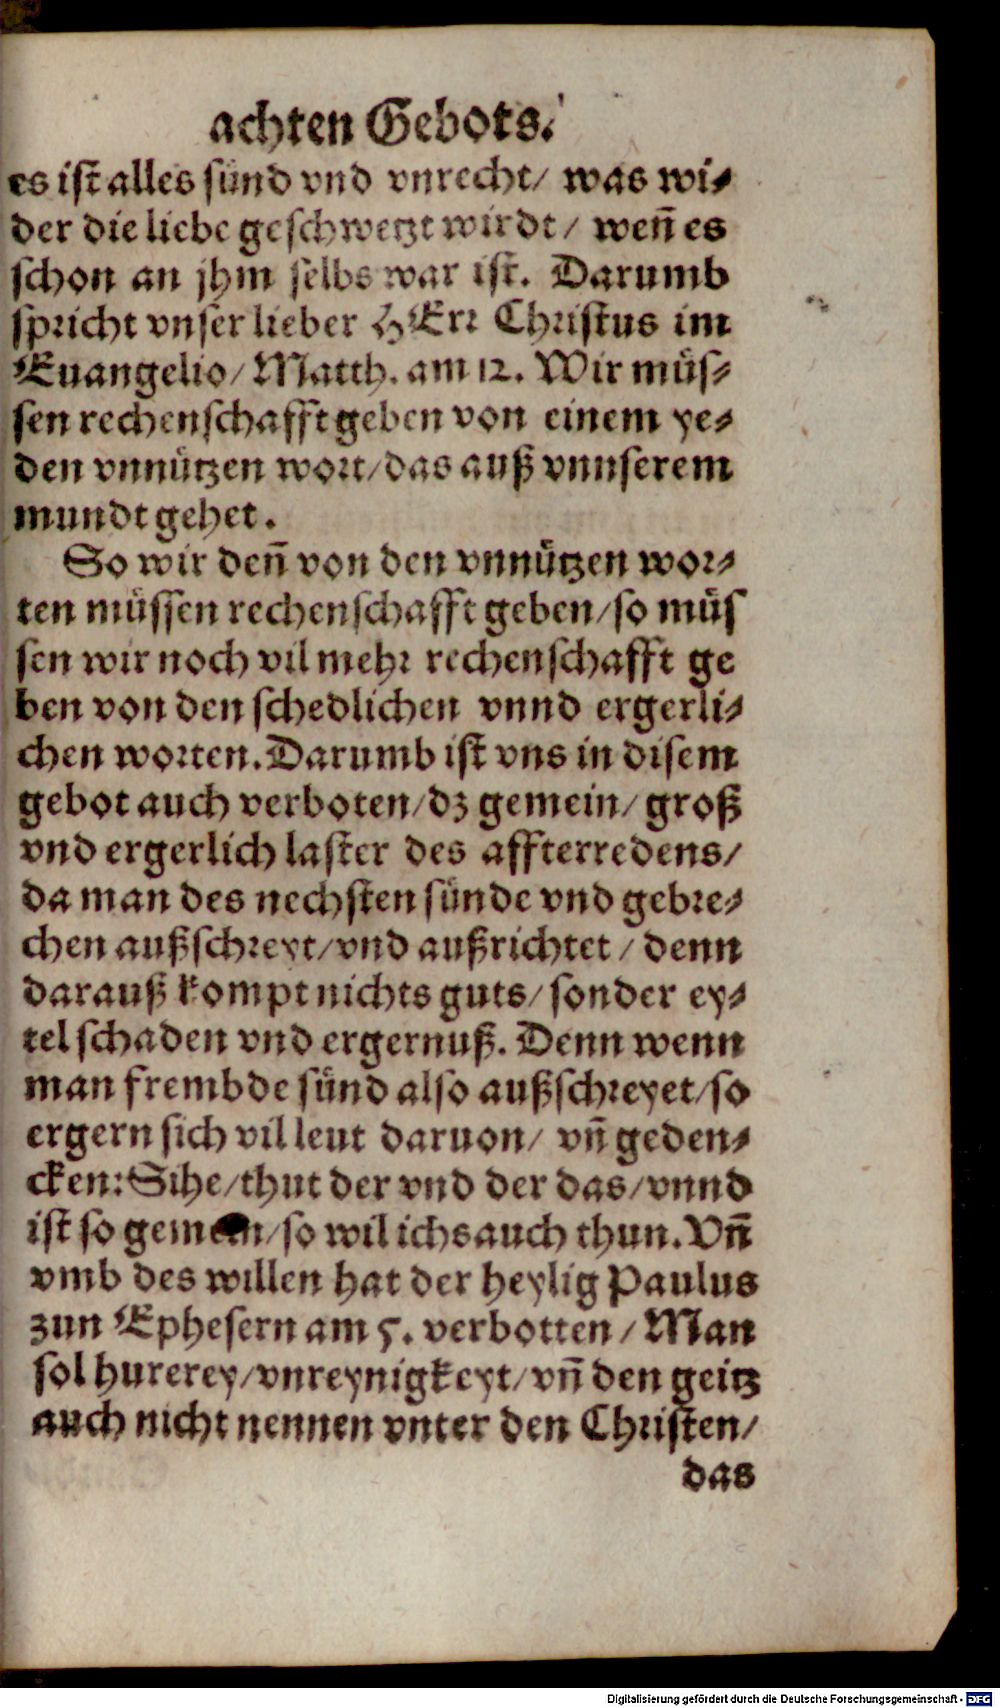 achten Gebots.
es ist alles sünd vnd vnrecht/ was wi-
der die liebe geschwetzt wirdt/ weñ es
schon an jhm selbs war ist. Darumb
spricht vnser lieber HErr Christus im
Euangelio/ Matth. am 12. Wir müs-
sen rechenschafft geben von einem ye-
den vnnützen wort/das auß vnnserem
mundt gehet.
So wir deñ von den vnnützen wor-
ten müssen rechenschafft geben/so müs
sen wir noch vil mehr rechenschafft ge
ben von den schedlichen vnnd ergerli-
chen worten. Darumb ist vns in disem
gebot auch verboten/dz gemein/ groß
vnd ergerlich laster des affterredens/
da man des nechsten sünde vnd gebre-
chen außschreyt/vnd außrichtet/ denn
darauß kompt nichts guts/ sonder ey-
tel schaden vnd ergernuß. Denn wenn
man frembde sünd also außschreyet/so
ergern sich vil leut daruon/ vñ geden-
cken: Sihe/thut der vnd der das/vnnd
ist so gemein/so wil ichs auch thun. Vñ
vmb des willen hat der heylig Paulus
zun Ephesern am 5. verbotten/ Man
sol hurerey/vnreynigkeyt/vñ den geitz
auch nicht nennen vnter den Christen/
das
Digitalisierung gefördert durch die Deutsche Forschungsgemeinschaft - DFG